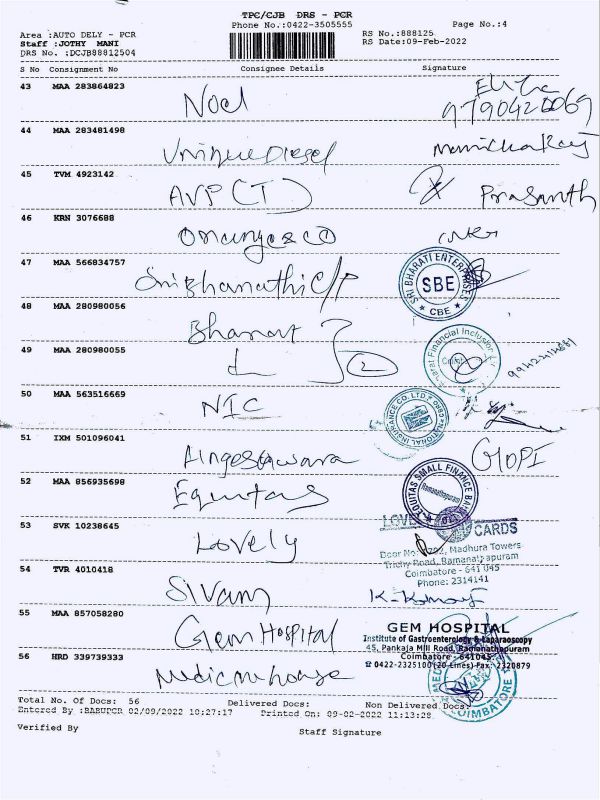 TPC/CJB DRS - PCR
Phone No.:0422-3505555
Page No.:4
Area :AUTO DELY - PCR
RS No.:888125
Staff :JOTHY MANI
RS Date:09-Feb-2022
DRS No. :DCJB88812504
S No Consignment No Consignee Details Signature
43 MAA 283864823 Noel
9790420069
44 MAA 283481498 Unique Diesel
45 TVM 4923142 AVP (T) Prasanth
46 KRN 3076688 Orange & CO
47 MAA 566834757 Sri Bharathi E/P
SRI BHARATI ENTERPRISES
SBE
CBE
48 MAA 280980056 Bharat
49 MAA 280980055 2
Bharat Financial Inclusion
50 MAA 563516669 NIC
NATIONAL INSURANCE CO. LTD.
51 IXM 501096041 GOPI
52 MAA 856935698 Equitas
EQUITAS SMALL FINANCE BANK
Ramanathapuram
53 SVK 10238645 Lovely
LOVELY CARDS
Madhura Towers
Trichy Road, Ramanathapuram
Coimbatore - 641 045
Phone: 2314141
54 TVR 4010418 Sivam
55 MAA 857058280 Gem Hospital
GEM HOSPITAL
Institute of Gastroenterology & Laparoscopy
45, Pankaja Mill Road, Ramanathapuram
Coimbatore - 641045
☎ 0422-2325100 (20-Lines) Fax: 2320879
56 HRD 339739333 Medicine house
COIMBATORE
Total No. Of Docs: 56 Delivered Docs: Non Delivered Docs:
Entered By :BABUPCR 02/09/2022 10:27:17 Printed On: 09-02-2022 11:13:28
Verified By Staff Signature